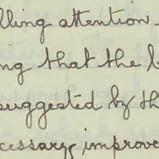 lling attention.
ng that the b
suggested by th
cessary improve